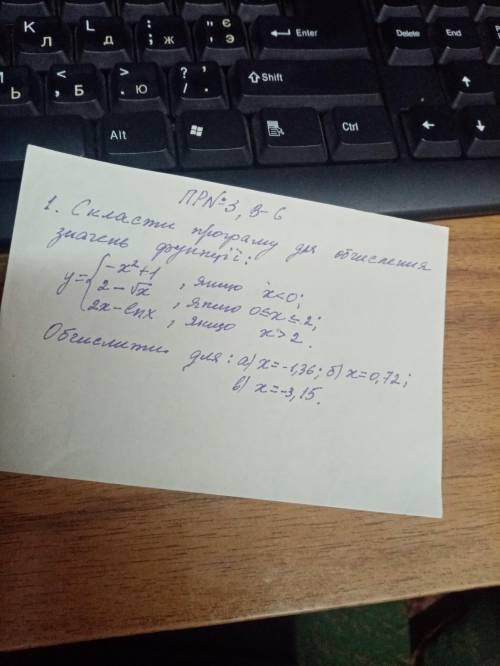 К Л
L Д
: ; Ж
" ' Є Э
Enter
Delete
End
Ь
< , Б
> . Ю
? / .
Shift
Alt
Ctrl
ПР№3, В-6
1. Скласти програму для обчислення
значень функції:
y = { -x²+1 , якщо x<0;
2-√x , якщо 0≤x≤2;
2x-lnx , якщо x>2.
Обчислити для: а) x=-1,36; б) x=0,72;
в) x=-3,15.